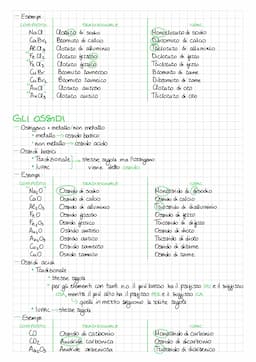 – Esempi
COMPOSTO TRADIZIONALE IUPAC
NaCl Cloruro di sodio Monocloruro di sodio
CaBr₂ Bromuro di calcio Dibromuro di calcio
AlCl₃ Cloruro di alluminio Tricloruro di alluminio
FeCl₂ Cloruro ferroso Dicloruro di ferro
FeCl₃ Cloruro ferrico Tricloruro di ferro
CuBr Bromuro rameoso Bromuro di rame
CuBr₂ Bromuro rameico Dibromuro di rame
AuCl Cloruro auroso Cloruro di oro
AuCl₃ Cloruro aurico Tricloruro di oro
GLI OSSIDI
– Ossigeno + metallo/non metallo
• metallo → ossido basico
• non metallo → ossido acido
– Ossidi basici
• Tradizionale → stesse regole ma l'ossigeno
• IUPAC viene detto ossido
– Esempi
COMPOSTO TRADIZIONALE IUPAC
Na₂O Ossido di sodio Monossido di sodio
CaO Ossido di calcio Ossido di calcio
Al₂O₃ Ossido di alluminio Triossido di dialluminio
FeO Ossido ferroso Ossido di ferro
Fe₂O₃ Ossido ferrico Triossido di diferro
Au₂O Ossido auroso Ossido di oro
Au₂O₃ Ossido aurico Triossido di oro
Cu₂O Ossido rameoso Ossido di dirame
CuO Ossido rameico Ossido di rame
– Ossidi acidi
• Tradizionale
→ stesse regole
→ per gli elementi con tanti n.o. il più basso ha il prefisso IPO e il suffisso
OSA, mentre il più alto ha il prefisso PER e il suffisso ICA
→ quelli in mezzo seguono le solite regole
• IUPAC → stesse regole
– Esempi
COMPOSTO TRADIZIONALE IUPAC
CO Ossido di carbonio Monossido di carbonio
CO₂ Anidride carbonica Diossido di carbonio
Anidride carbonica di dicarbonio